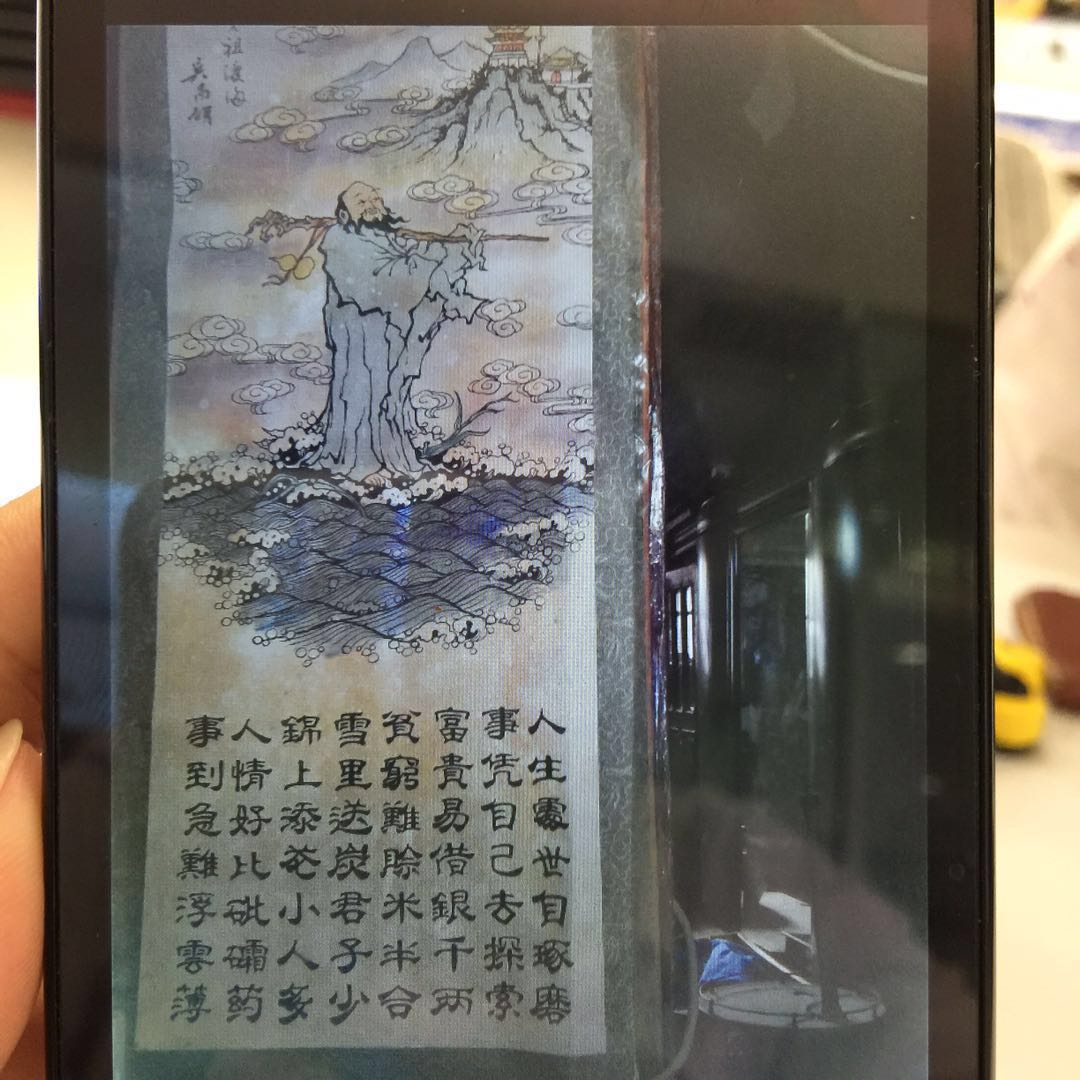 祖渡海
人生處世自琢磨
事凭自己去探索
富貴易借銀千两
貧窮難賒米半合
雪里送炭君子少
錦上添花小人多
人情好比砒礵药
事到急難浮雲薄